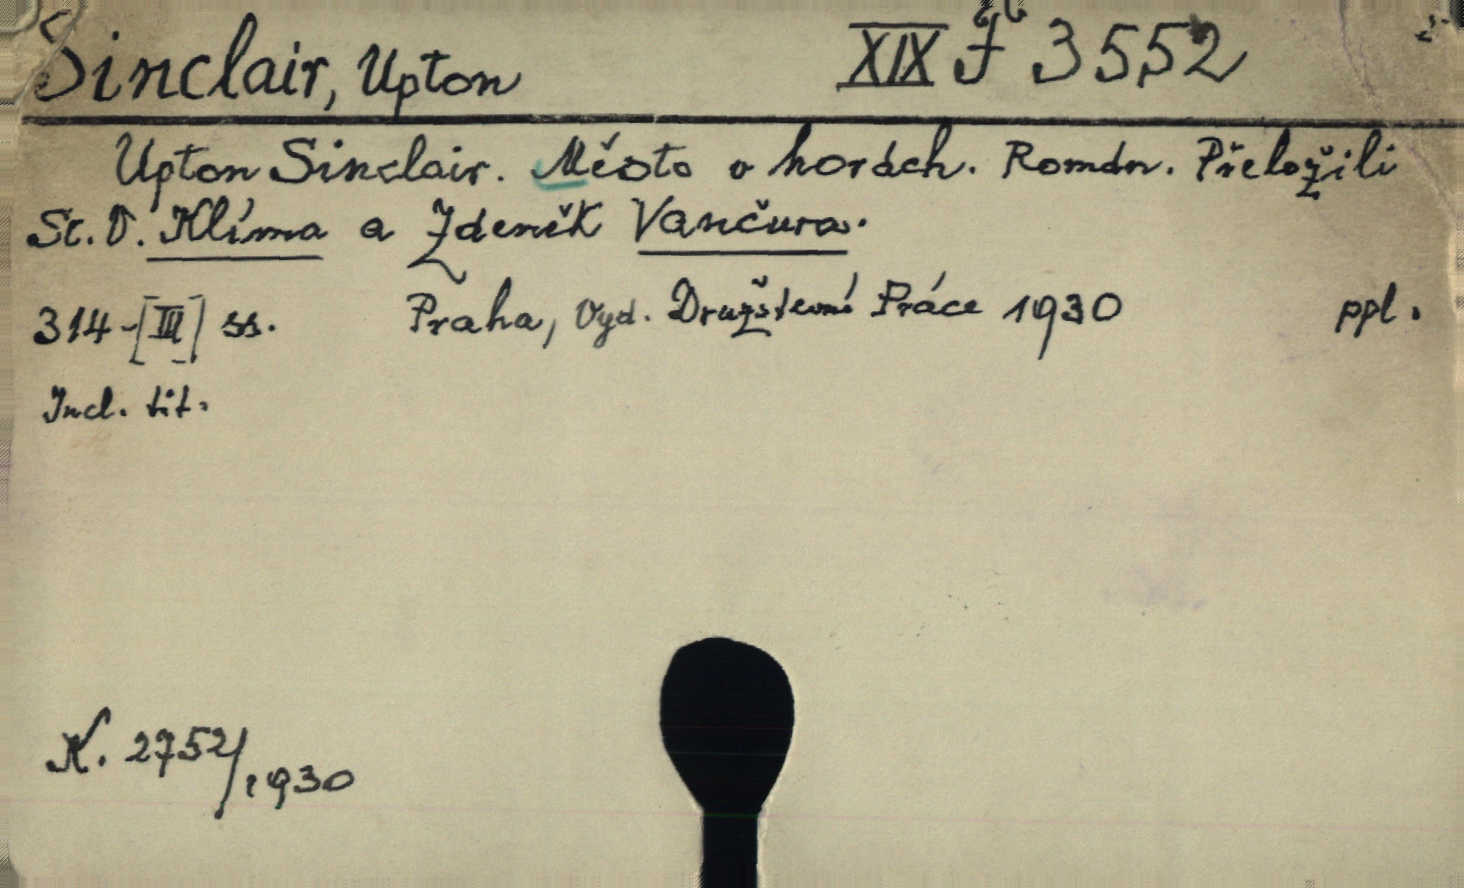 Sinclair, Upton XIX J 3552
Upton Sinclair. Město v horách. Román. Přeložili
St. V. Klíma a Zdeněk Vančura.
314-[III] ss. Praha, Vyd. Družstevní Práce 1930 ppl.
Incl. tit.
K. 2752/1930